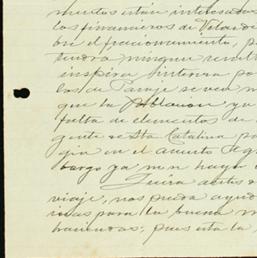 mentos están interesados
los financieros de Veland
bre el fraccionamiento, p
tendrá ningún result
inspira interesa pa
los de Paraje se vea n
que la Poblacion ya
falta de elementos de
gente de Sta Catalina po
gia en el asunto. Seg
bargo ya non hayan
Quiza antes d
viaje, nos pueda ayud
ivas para la buena m
banderas; pues esta la